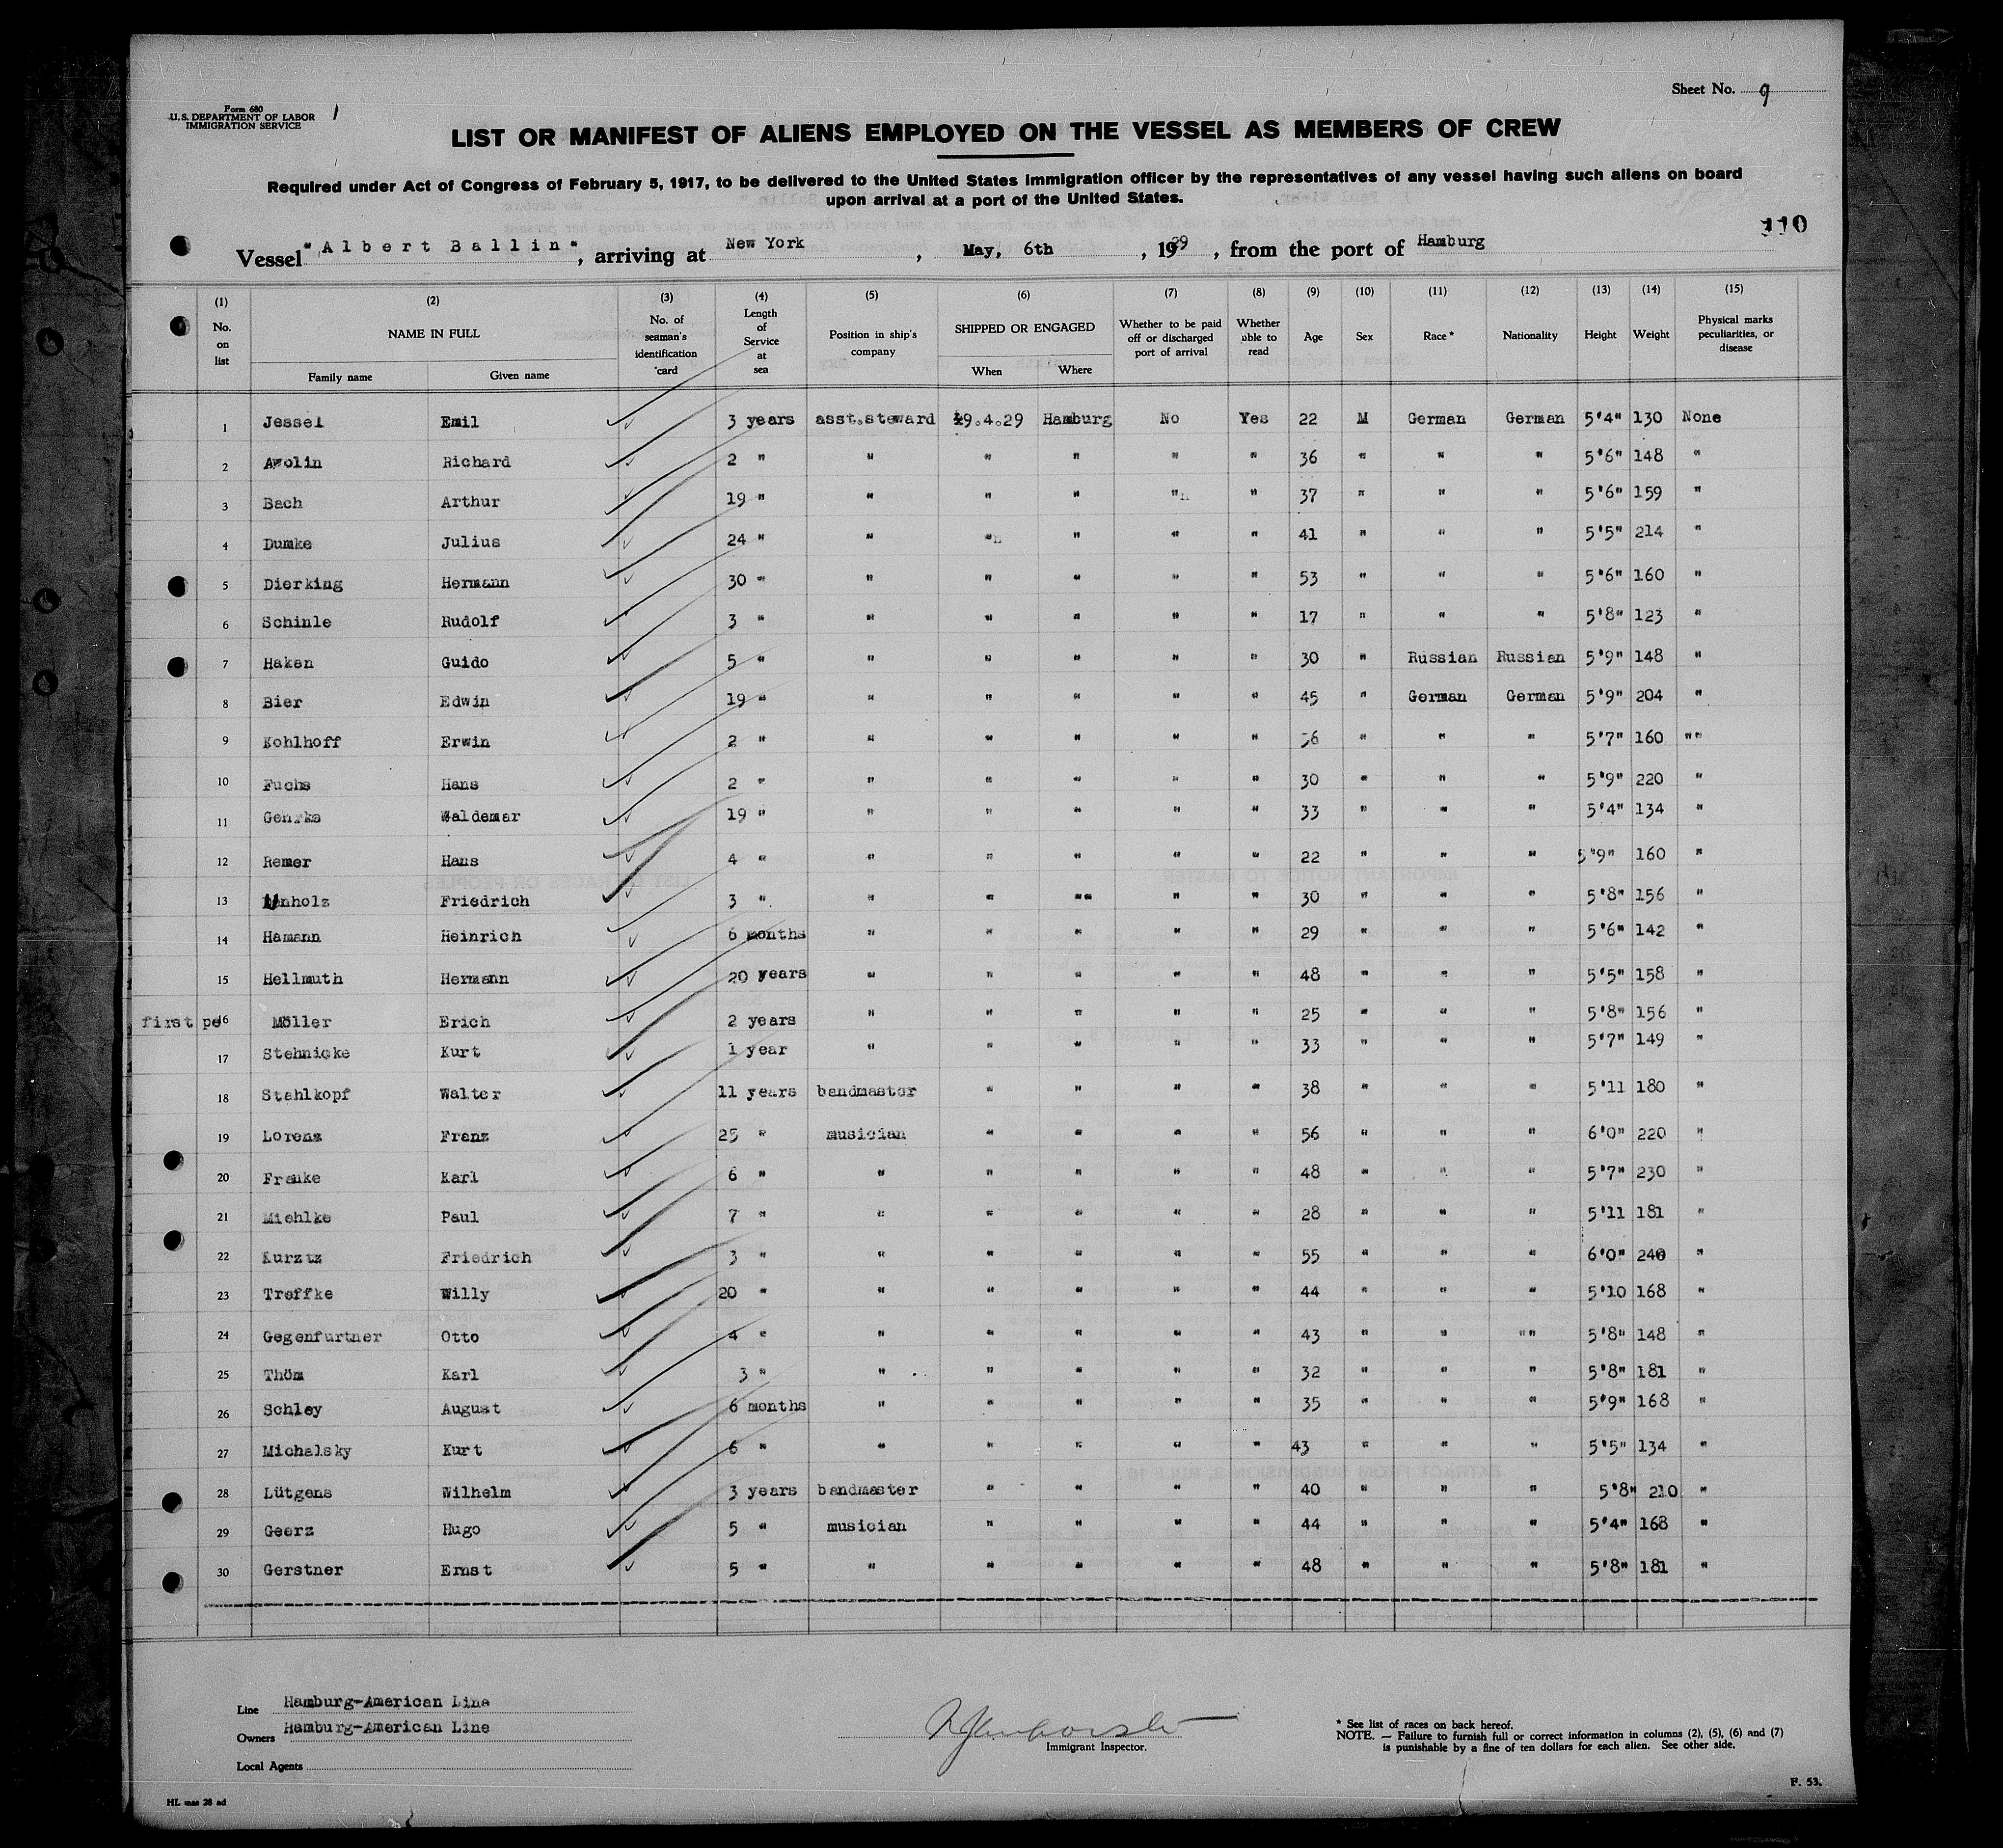 Form 680
U.S. DEPARTMENT OF LABOR
IMMIGRATION SERVICE
1
Sheet No. 9
LIST OR MANIFEST OF ALIENS EMPLOYED ON THE VESSEL AS MEMBERS OF CREW
Required under Act of Congress of February 5, 1917, to be delivered to the United States immigration officer by the representatives of any vessel having such aliens on board
upon arrival at a port of the United States.
110
Vessel "Albert Ballin", arriving at New York, May, 6th, 1929, from the port of Hamburg
(1) (2) (3) (4) (5) (6) (7) (8) (9) (10) (11) (12) (13) (14) (15)
No. on list NAME IN FULL No. of seaman's identification card Length of Service at sea Position in ship's company SHIPPED OR ENGAGED Whether to be paid off or discharged port of arrival Whether able to read Age Sex Race* Nationality Height Weight Physical marks peculiarities, or disease
Family name Given name When Where
1 Jessel Emil 3 years asst.steward 19.4.29 Hamburg No Yes 22 M German German 5'4" 130 None
2 Awolin Richard 2 " " " " " " 36 " " " 5'6" 148 "
3 Bach Arthur 19 " " " " " " 37 " " " 5'6" 159 "
4 Dumke Julius 24 " " " " " " 41 " " " 5'5" 214 "
5 Dierking Hermann 30 " " " " " " 53 " " " 5'6" 160 "
6 Schinle Rudolf 3 " " " " " " 17 " " " 5'8" 123 "
7 Haken Guido 5 " " " " " " 30 " Russian Russian 5'9" 148 "
8 Bier Edwin 19 " " " " " " 45 " German German 5'9" 204 "
9 Kohlhoff Erwin 2 " " " " " " 36 " " " 5'7" 160 ""
10 Fuchs Hans 2 " " " " " " 30 " " " 5'9" 220 "
11 Waldemar 19 " " " " " " 33 " " " 5'4" 134 "
12 Remer Hans 4 " " " " " " 22 " " " 5'9" 160 "
13 Friedrich 3 " " " "" " " 30 " " " 5'8" 156 "
14 Hamann Heinrich 6 months " " " " " 29 " " " 5'6" 142 "
15 Hellmuth Hermann 20 years " " " " " 48 " " " 5'5" 158 "
first pe 16 Möller Erich 2 years " " " " " 25 " " " 5'8" 156 "
17 Stehnicke Kurt 1 year " " " " " 33 " " " 5'7" 149 "
18 Stahlkopf Walter 11 years bandmaster " " " " 38 " " " 5'11 180 "
19 Lorenz Franz 25 " musician " " " " 56 " " " 6'0" 220 "
20 Franke Karl 6 " " " " " " 48 " " " 5'7" 230 "
21 Miehlke Paul 7 " " " " " " 28 " " " 5'11 181 "
22 Kurztz Friedrich 3 " " " " " " 55 " " " 6'0" 240 "
23 Treffke Willy 20 " " " " " " 44 " " " 5'10 168 "
24 Gegenfurtner Otto 4 " " " " " " 43 " " "" 5'8" 148 "
25 Thöm Karl 3 " " " " " " 32 " " " 5'8" 181 "
26 Schley August 6 months " " " " " 35 " " " 5'9" 168 "
27 Michalsky Kurt 6 " " " " " " 43 " " " 5'5" 134 "
28 Lütgens Wilhelm 3 years bandmaster " " " " 40 " " " 5'8" 210 "
29 Geerz Hugo 5 " musician " " " " 44 " " " 5'4" 168 "
30 Gerstner Ernst 5 " " " " " " 48 " " " 5'8" 181 "
Line Hamburg-American Line
Owners Hamburg-American Line
Local Agents
Immigrant Inspector.
* See list of races on back hereof.
NOTE. — Failure to furnish full or correct information in columns (2), (5), (6) and (7)
is punishable by a fine of ten dollars for each alien. See other side.
F. 53.
HL mas 28 ad